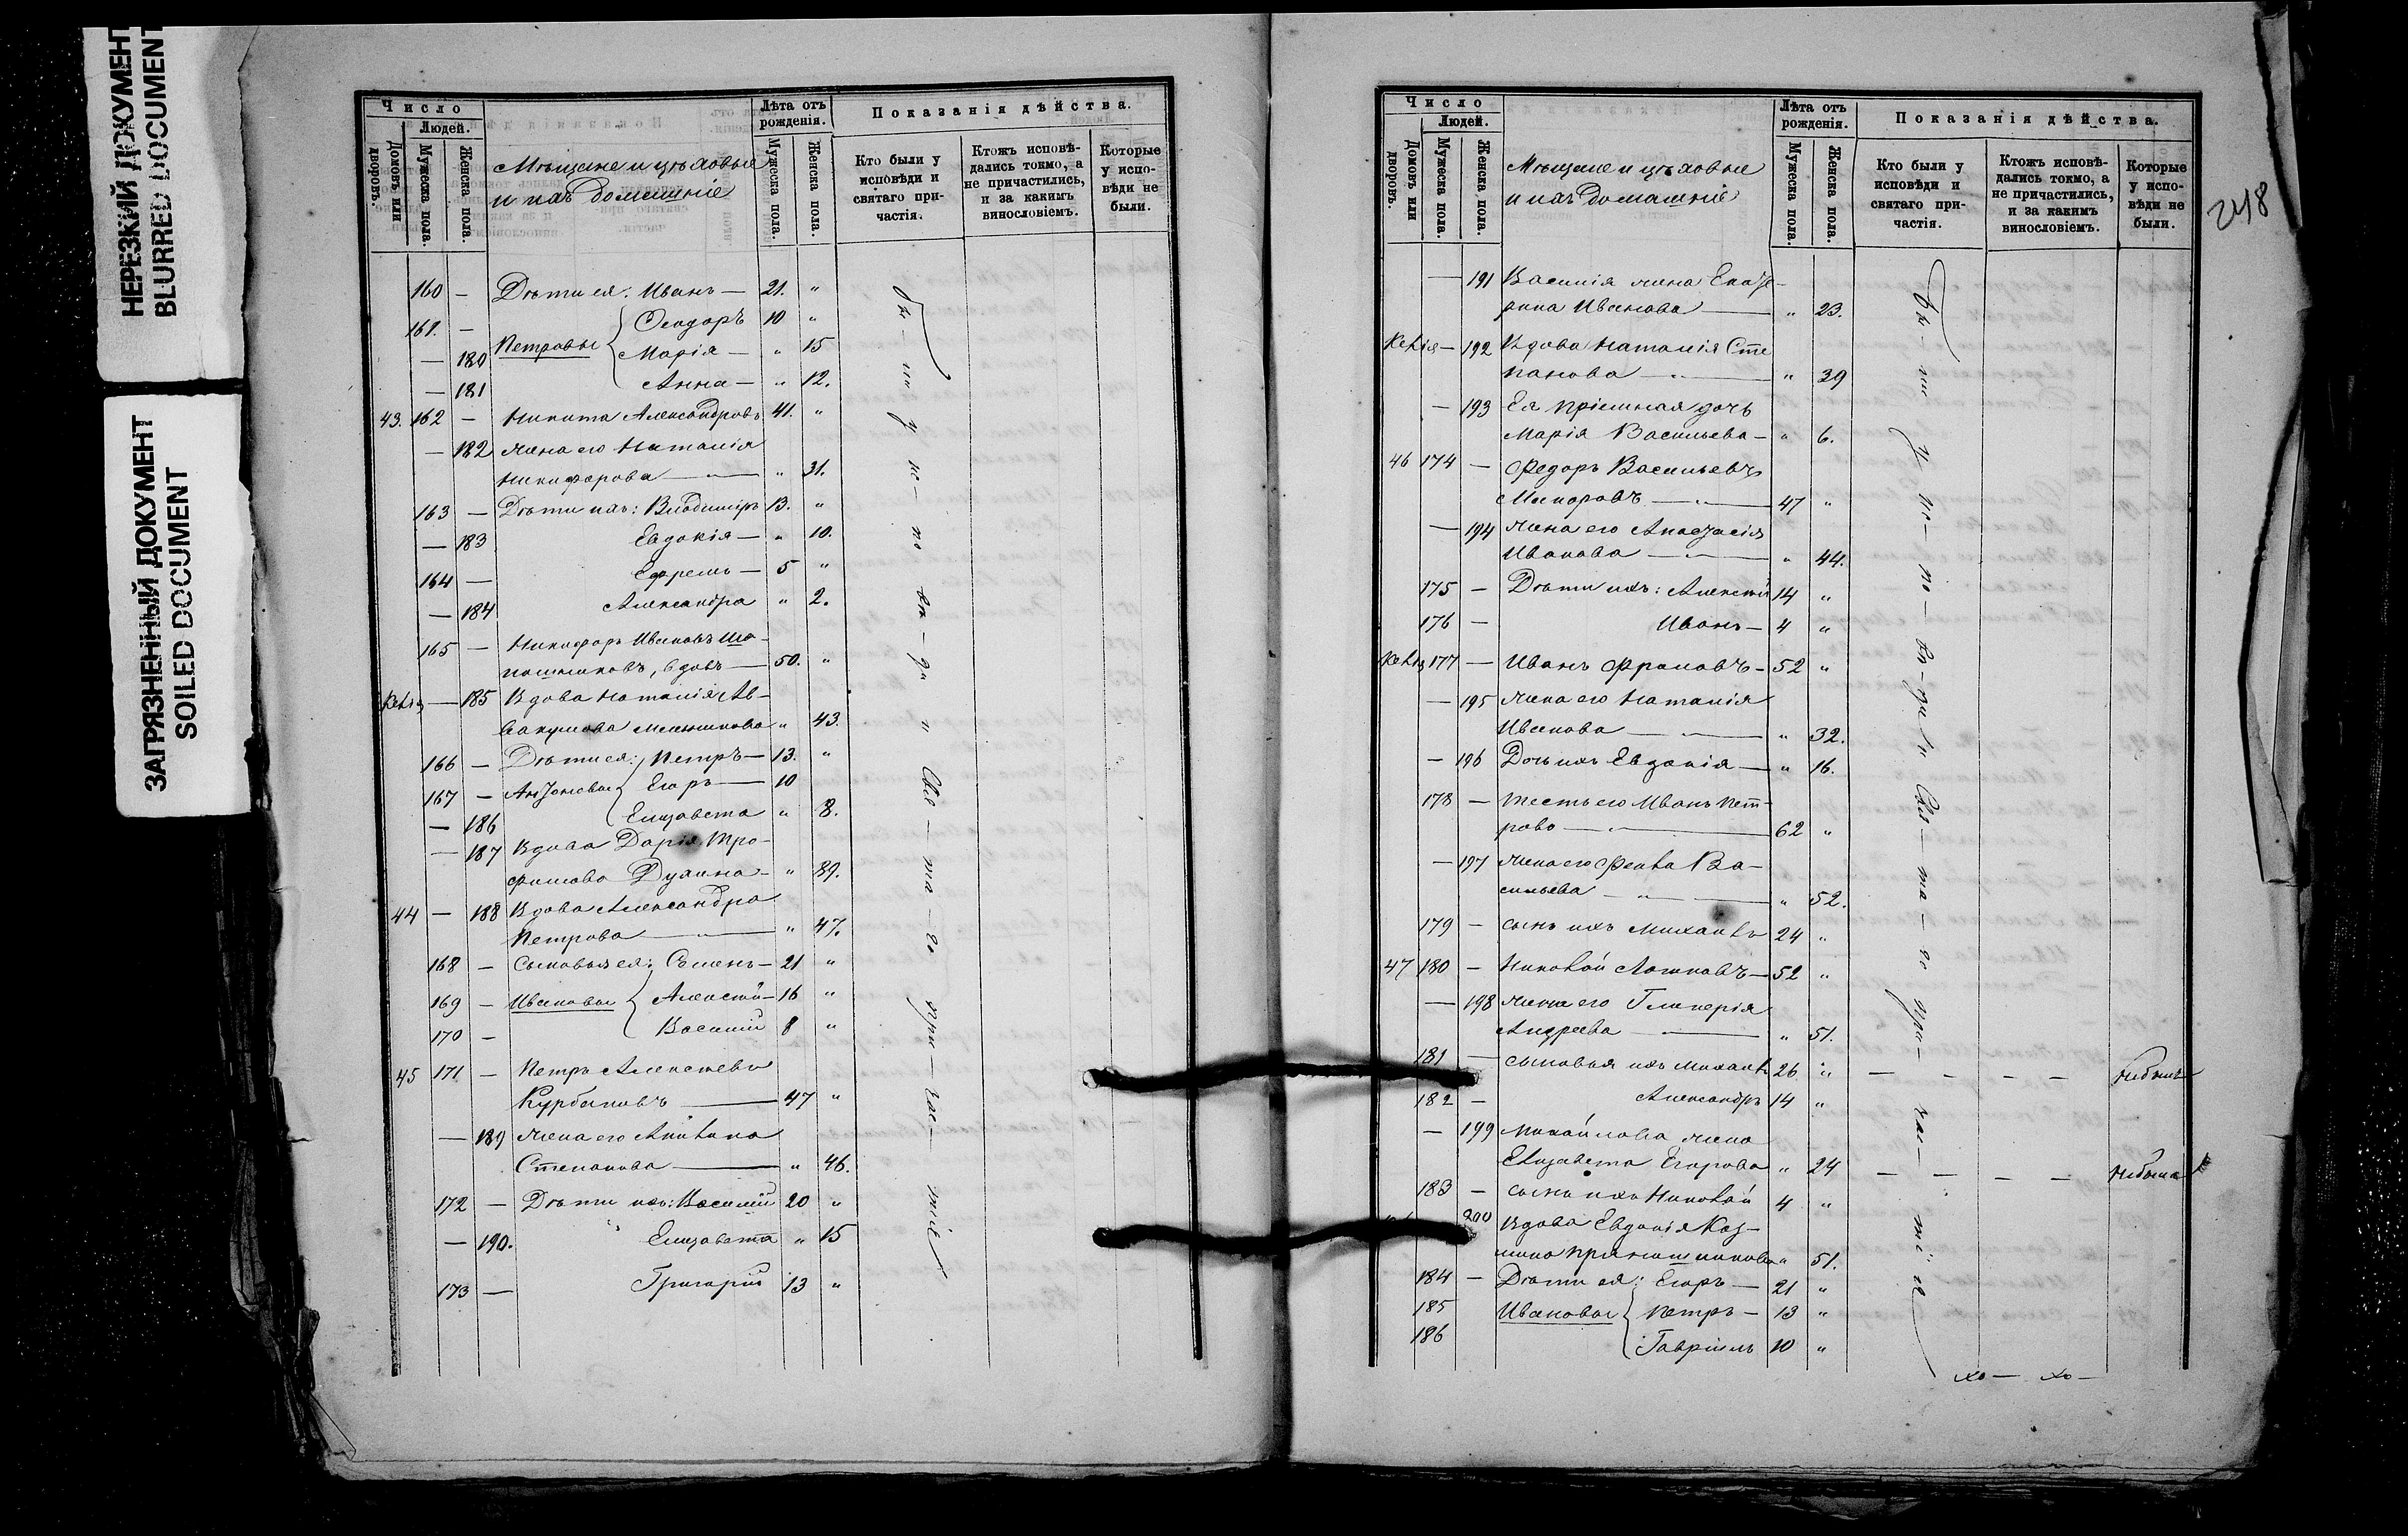 НЕРЕЗКИЙ ДОКУМЕНТ
BLURRED DOCUMENT
ЗАГРЯЗНЕННЫЙ ДОКУМЕНТ
SOILED DOCUMENT
Число
Людей.
Домовъ или дворовъ.
Мужеска пола.
Женска пола.
Мѣщане и цѣховые
и ихъ домашніе
Лѣта отъ рожденія.
Мужеска пола.
Женска пола.
Показанія дѣйства.
Кто были у исповѣди и святаго при-частія.
Ктожъ исповѣ-дались токмо, а не причастились, и за какимъ винословіемъ.
Которые у испо-вѣди не были.
160 — Дѣти ея: Иванъ — 21. "
161. — Ѳеодоръ 10 "
— 180 Петровы Марія — " 15
— 181 Анна — " 12.
43. 162 — Никита Александровъ 41. "
— 182 жена его Наталія
Никифорова — " 31.
163 — Дѣти ихъ: Владиміръ 13. "
— 183 Евдокія — " 10.
164 — Ефремъ — 5 "
— 184 Александра " 2.
165 — Никифоръ Ивановъ Ша-
пошниковъ, вдовъ — 50. "
— 185 Вдова Наталія Ав-
вакумова " 43.
166 — Дѣти ея: Петръ — 13. "
167 — Антоновы Егоръ — 10
— 186 Елизавета " 8.
— 187 Вдова Дарія Тро-
фимова — " 39.
44 — 188 Вдова Александра
Петрова — " 47.
168 — Сыновья ея: Семенъ — 21 "
169 — Ивановы Алексѣй — 16 "
170 — Василій 8 "
45 171 — Петръ Алексѣевъ
Курбатовъ — 47 "
— 189 жена его
Степанова — " 46.
172 — Дѣти ихъ: Василій 20 "
— 190. Елизавета " 15
173 — Григорій 13 "
бы-ли у ис-по-вѣ-ди и свя-та-го при-час-тія
Число
Людей.
Домовъ или дворовъ.
Мужеска пола.
Женска пола.
Мѣщане и цѣховые
и ихъ домашніе
Лѣта отъ рожденія.
Мужеска пола.
Женска пола.
Показанія дѣйства.
Кто были у исповѣди и святаго при-частія.
Ктожъ исповѣ-дались токмо, а не причастились, и за какимъ винословіемъ.
Которые у испо-вѣди не были.
248
— 191 Василія жена Екате-
рина Иванова — " 23.
— 192 Вдова Наталія Сте
панова — " 39
— 193 Ея пріемная дочь
Марія Васильева — " 6.
46 174 — Федоръ Васильевъ
47 "
— 194 жена его Анастасія
Иванова — " 44.
175 — Дѣти ихъ: Алексѣй 14 "
176 — Иванъ — 4 "
177 — Иванъ Фроловъ — 52 "
— 195 жена его Наталія
Иванова — " 32.
— 196 Дочь ихъ Евдокія — " 16.
178 — тесть его Иванъ Пет-
ровъ — 62 "
— 197 жена его Фекла Ва-
сильева — " 52.
179 — сынъ ихъ Михаилъ 24 "
47 180 — Николай — 52 "
— 198 жена его Гликерія
Андреева — " 51.
181 — сыновья ихъ Михаилъ 26 " — — — — небылъ
182 — Александръ 14 "
— 199 Михайлова жена
Елизавета Егорова " 24 — — — — небыла
183 — сынъ ихъ Николай 4 "
200 Вдова Евдокія Коз-
мина Прянишникова " 51.
184 — Дѣти ея: Егоръ — 21 "
185 Ивановы Петръ — 13 "
186 Гавріилъ 10 "
бы-ли у ис-по-вѣ-ди и свя-та-го при-час-тія